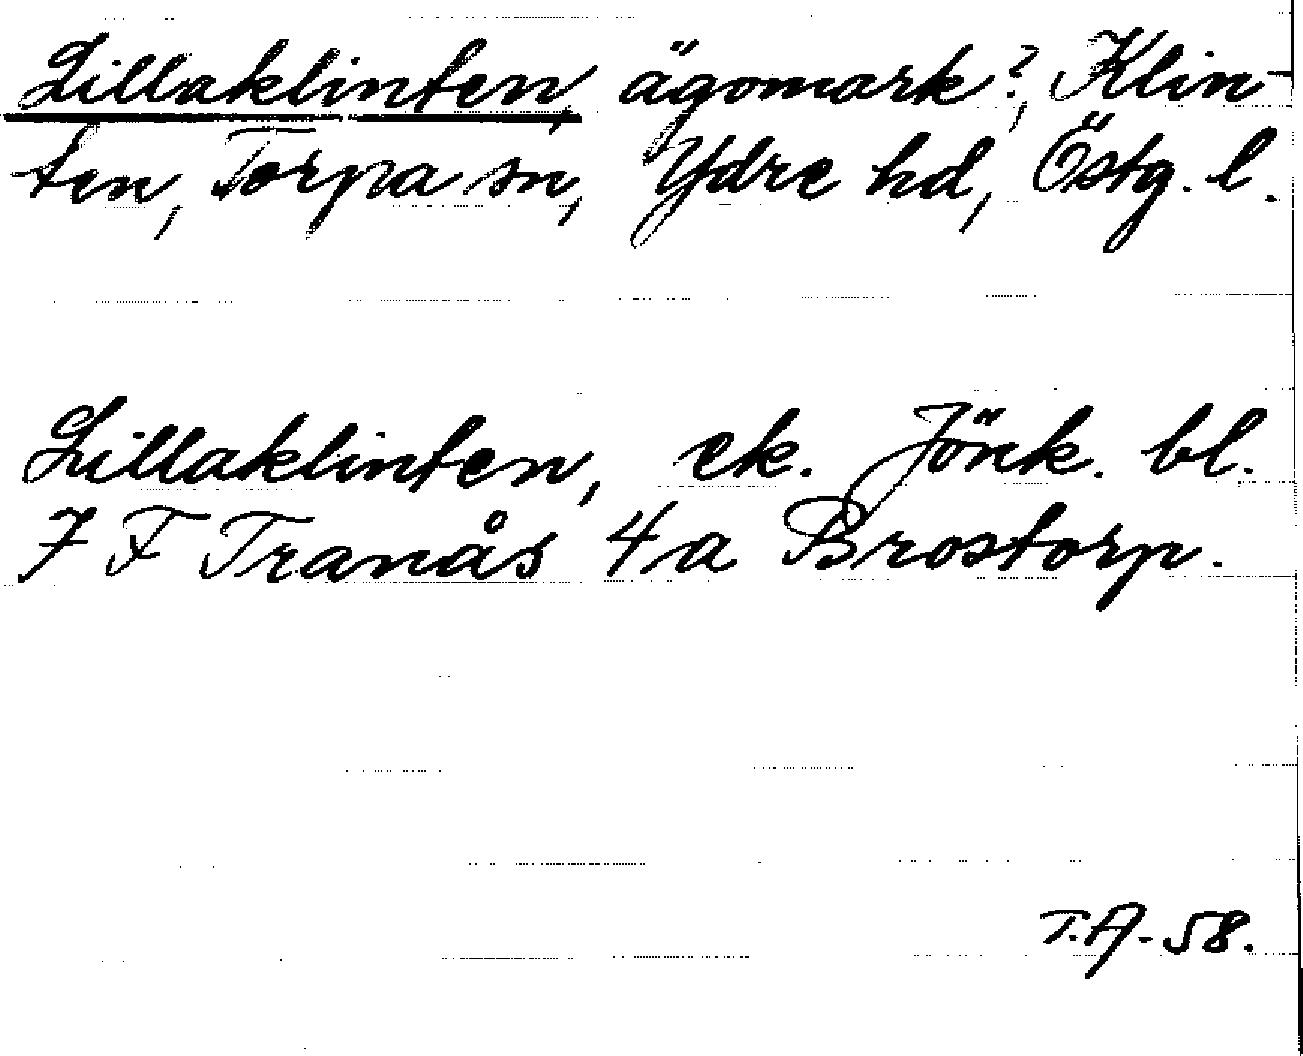 Lillaklinten, ägomark?, Klin-
ten, Torpa sn, Ydre hd, Östg. l.
Lillaklinten, ek. Jönk. bl.
7 F Tranås 4 a Brostorp.
T.A. 58.